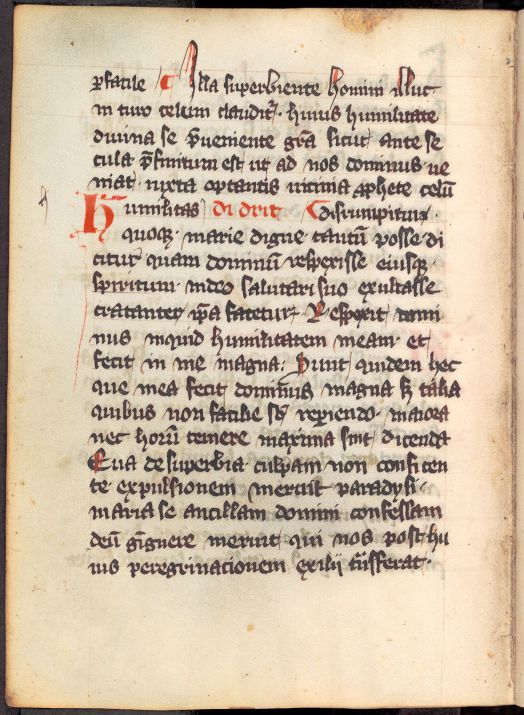 ꝑfacile ¶ Illa superbiente homini illuc
in turo celum claudit᷑. huius humilitate
diuina se p̄ueniente gr̄a sicut ante se
cula p̄finitum est ut ad nos dominus ue
niat. iuxta optantis uicinia ꝓphete celū
humilitas di drit ¶ disrumpitur.
quoqꝫ marie digne tantū posse di
citur quam dominū respexisse eiusqꝫ
spiritum in deo salutari suo exultasse
ip̄a fatetur Respexit
nus inquid humilitatem meam. et
fecit in me magna. Sunt quidem hec
que mea fecit dominus magna sꝫ talia
quibus non facile maiora
nec horū temere maxima sint dicenda
Eua de superbia culpam non confiten
te. expulsionem meruit paradysi.
maria se ancillam domini confessam
deū gīgnere meruit qui nos post hu
ius peregrinacionem exilij tn̄sferat.